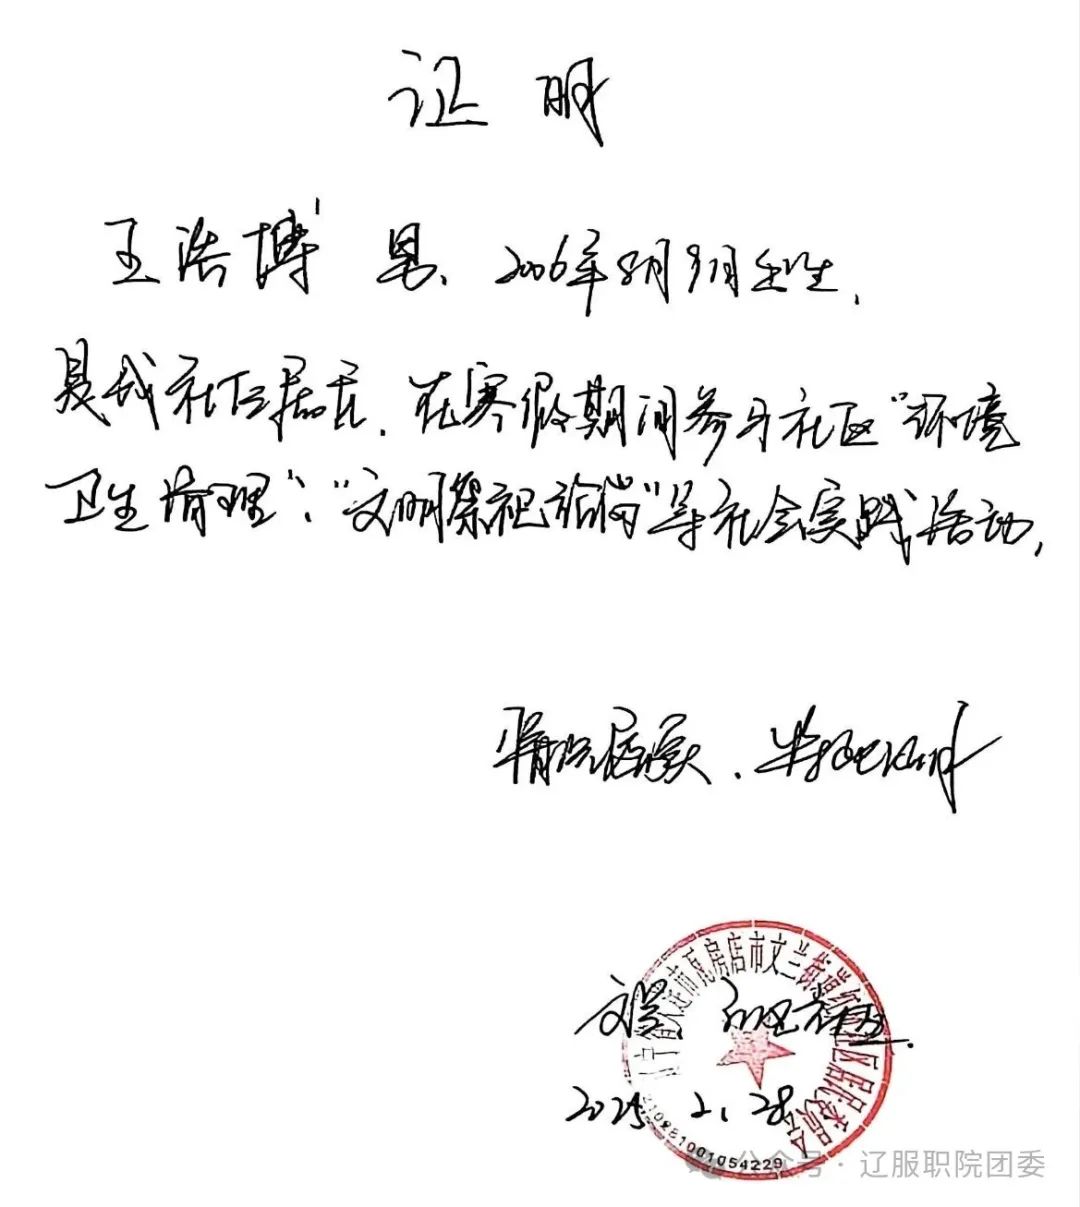 证明
王浩博 男、2006年8月9日出生,
是我社区居民,在寒假期间参与社区“环境
卫生清理”、“文明祭祀站岗”等社会实践活动,
情况属实.
文兰 社区
2025.2.28
辽宁省大连市瓦房店市文兰街道 社区居民委员会
210281001054229
公众号·辽服职院团委